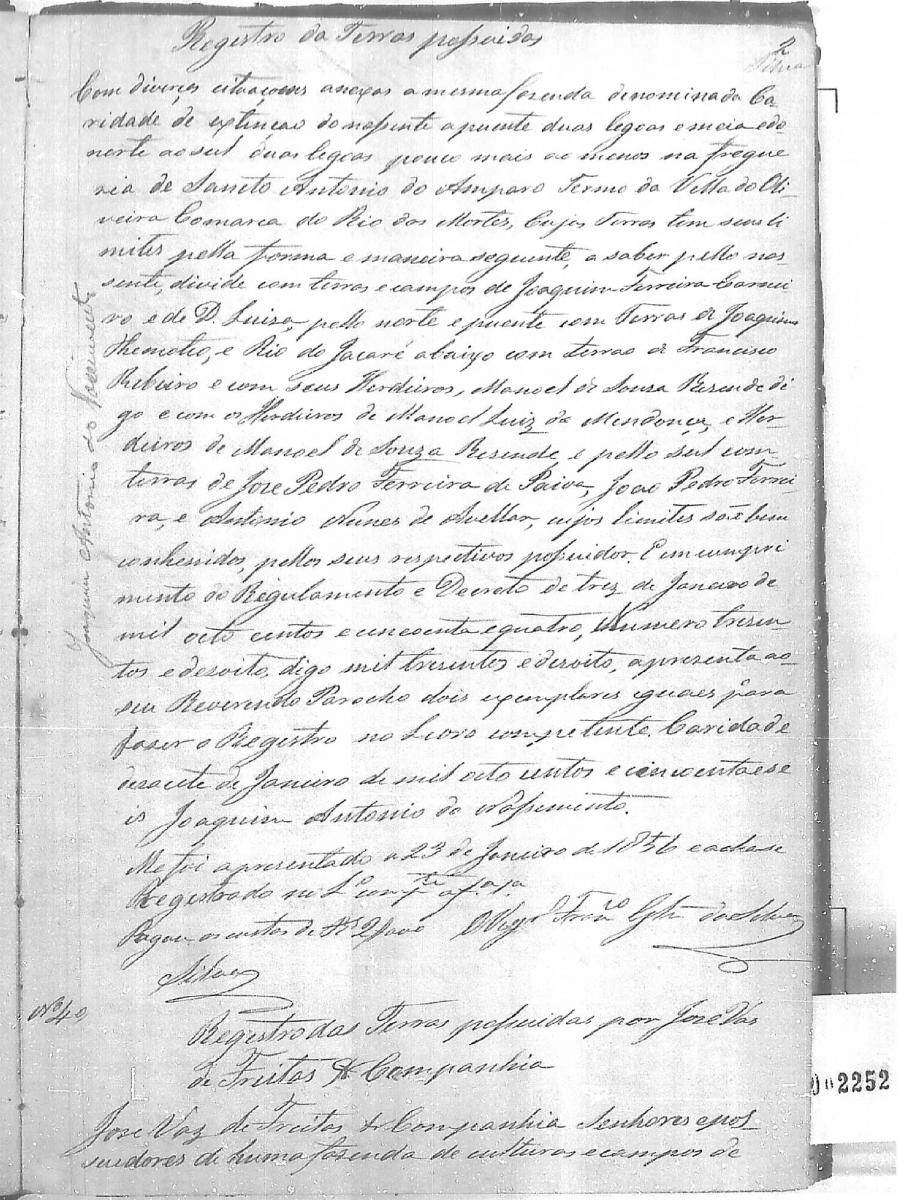 Registro da Terras possuidas
2
Silva
Com diverças cituaçoens anexas a mesma fazenda denominada Ca
ridade de extinçao do nassente a puente duas legoas e meia e do
norte ao sul duas legoas pouco mais ao menos na fregue
ria de Sancto Antonio do Amparo Termo da Villa do Oli
veira Comarca do Rio das Mortes, Cujas Terras tem seus li
mites pella forma e maneira seguente, a saber pello nas
sente, divide com terras e campos de Joaquim Ferreira Carnei
ro e de D. Luisa, pello norte e puente com Terras de Joaquim
Themoteo, e Rio do Jacaré abaixo com terras de Francisco
Ribeiro e com seus Herdeiros, Manoel de Souza Rezende di
go e com os Herdeiros de Manoel Luiz da Mendonça, e Her
deiros de Manoel de Souza Rezende e pello sul com
terras de Jose Pedro Ferreira de Paiva, Joao Pedro Ferrei
ra, e Antonio Nunes de Avellar, cujos limites são bem
conhessidos, pellos seus respectivos possuidor. E em cumpri
mento do Regulamento e Decreto de trez de Janeiro de
mil octo centos e cincoenta e quatro, Numero tresen
tos e desoito, digo mil tresentos e desoito, apresenta ao
seu Reverendo Parocho dois exemplares iguaes para
faser o Registro no Livro competente. Caridade
desacete de Janeiro de mil octo centos e cincoenta e se
is Joaquim Antonio do Nassimento.
Me foi apresentado a 23 de Janeiro de 1856 e acha se
Registrado no L.º
Pagou os custos de Rs 2 O Vigr.º Fran.co da Silva
Silva
Joaquim Antonio do Nassimento
Nº 4
Registro das Terras possuidas por Jose Vas
de Freitas & Companhia
Jose Vaz de Freitas & Companhia Senhores e pos
suidores de huma fazenda de culturas e campos de
002252